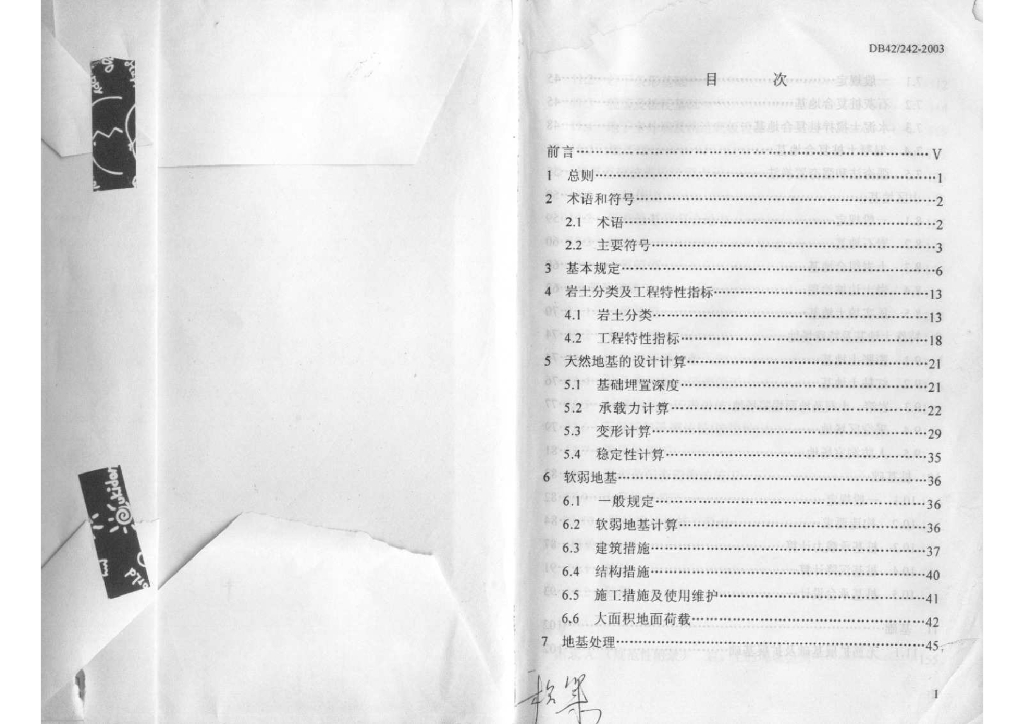 DB42/242-2003
目 次
前言……………………………………V
1 总则……………………………………1
2 术语和符号……………………………………2
2.1 术语……………………………………2
2.2 主要符号……………………………………3
3 基本规定……………………………………6
4 岩土分类及工程特性指标……………………………………13
4.1 岩土分类……………………………………13
4.2 工程特性指标……………………………………18
5 天然地基的设计计算……………………………………21
5.1 基础埋置深度……………………………………21
5.2 承载力计算……………………………………22
5.3 变形计算……………………………………29
5.4 稳定性计算……………………………………35
6 软弱地基……………………………………36
6.1 一般规定……………………………………36
6.2 软弱地基计算……………………………………36
6.3 建筑措施……………………………………37
6.4 结构措施……………………………………40
6.5 施工措施及使用维护……………………………………41
6.6 大面积地面荷载……………………………………42
7 地基处理……………………………………45
1